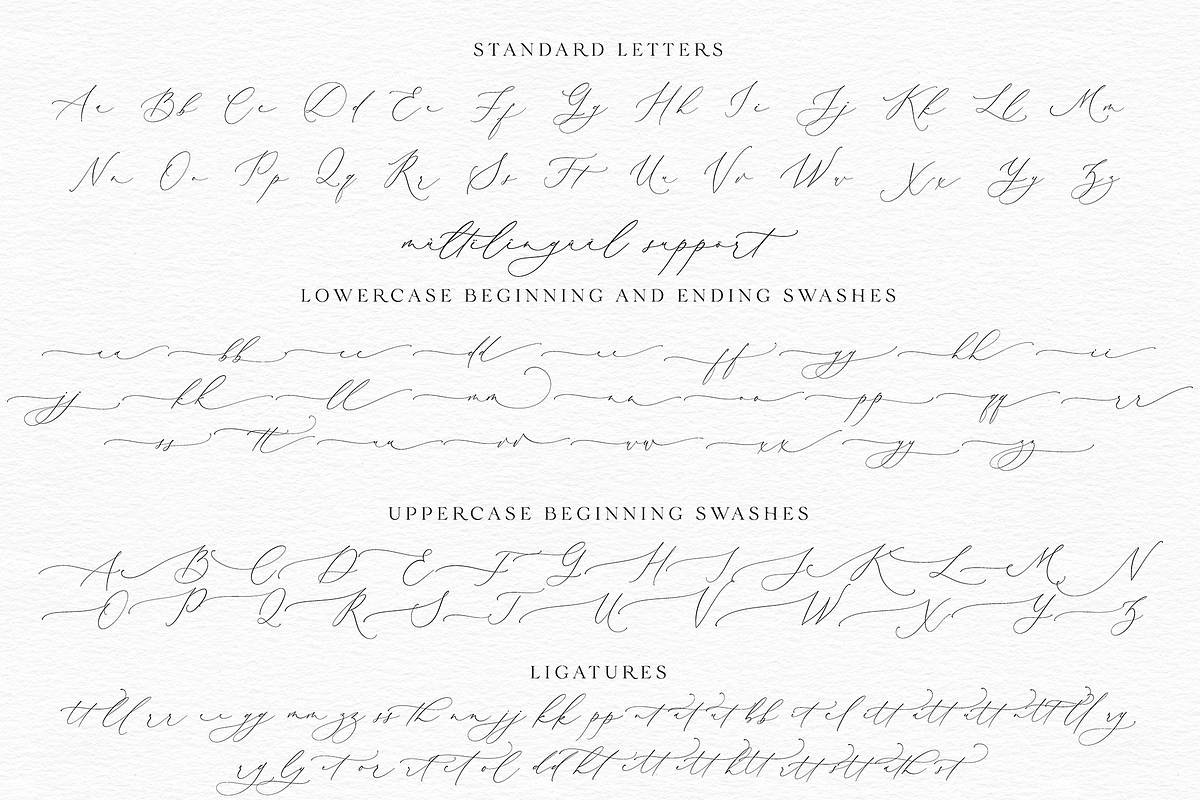 STANDARD LETTERS
Aa Bb Cc Dd Ee Ff Gg Hh Ii Jj Kk Ll Mm
Nn Oo Pp Qq Rr Ss Tt Uu Vv Ww Xx Yy Zz
multilingual support
LOWERCASE BEGINNING AND ENDING SWASHES
aa bb cc dd ee ff gg hh ii
jj kk ll mm nn oo pp qq rr
ss tt uu vv ww xx yy zz
UPPERCASE BEGINNING SWASHES
A B C D E F G H I J K L M N
O P Q R S T U V W X Y Z
LIGATURES
tt ll rr ee gg mm zz ss th nn jj kk pp